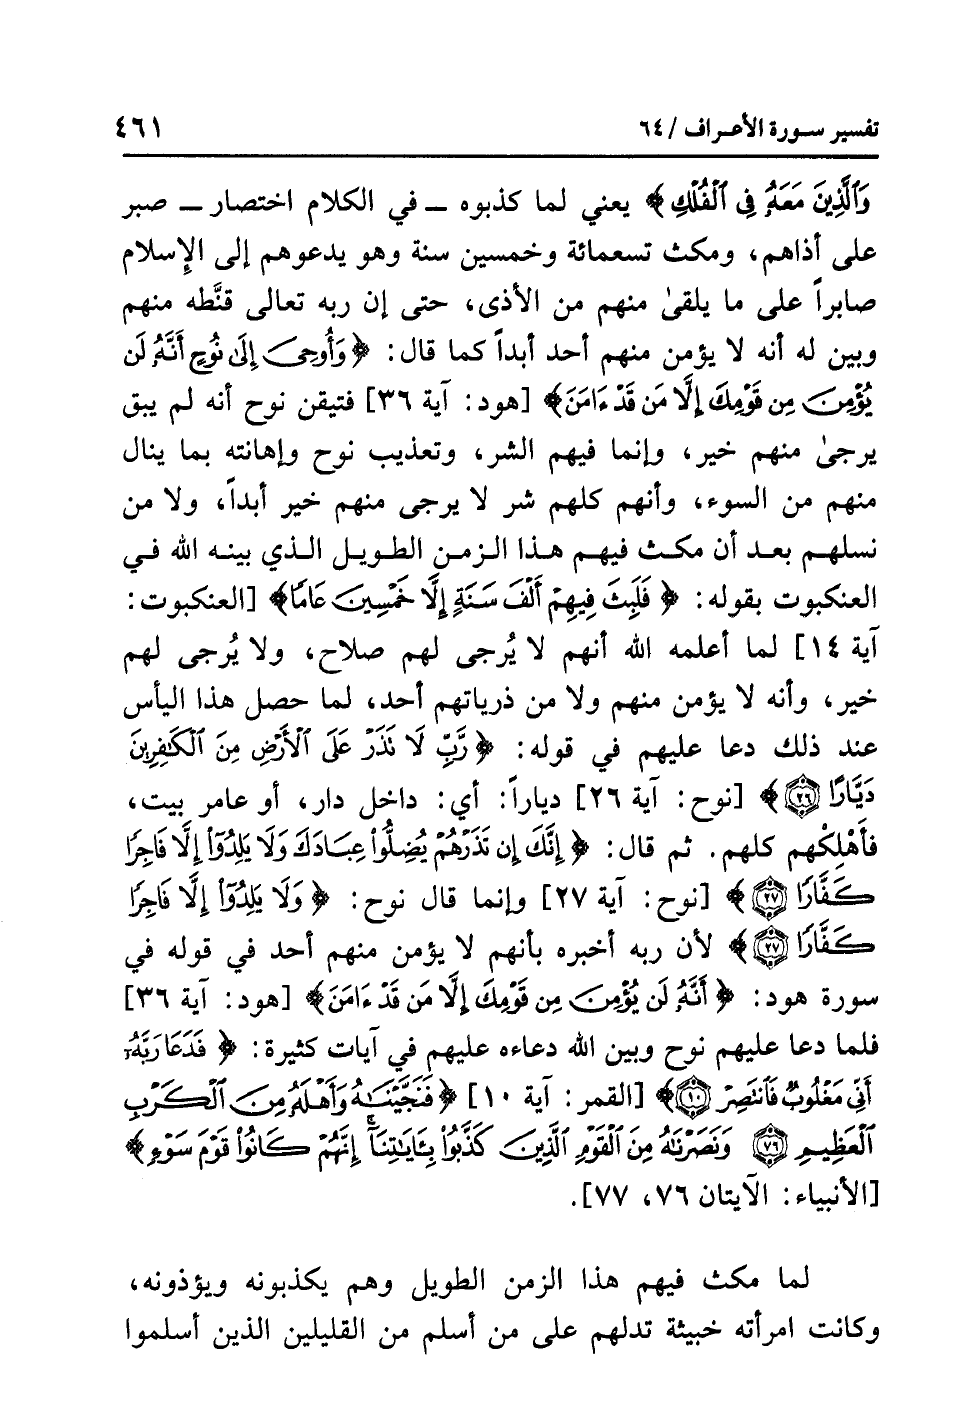 تفسير سورة الأعراف / ٦٤ ٤٦١
وَالَّذِينَ مَعَهُ فِي الْفُلْكِ﴾ يعني لما كذبوه ـ في الكلام اختصار ـ صبر
على أذاهم، ومكث تسعمائة وخمسين سنة وهو يدعوهم إلى الإسلام
صابراً على ما يلقىٰ منهم من الأذى، حتى إن ربه تعالى قنَّطه منهم
وبين له أنه لا يؤمن منهم أحد أبداً كما قال: ﴿وَأُوحِيَ إِلَىٰ نُوحٍ أَنَّهُ لَن
يُؤْمِنَ مِن قَوْمِكَ إِلَّا مَن قَدْ ءَامَنَ﴾ [هود: آية ٣٦] فتيقن نوح أنه لم يبق
يرجىٰ منهم خير، وإنما فيهم الشر، وتعذيب نوح وإهانته بما ينال
منهم من السوء، وأنهم كلهم شر لا يرجى منهم خير أبداً، ولا من
نسلهم بعد أن مكث فيهم هذا الزمن الطويل الذي بينه الله في
العنكبوت بقوله: ﴿فَلَبِثَ فِيهِمْ أَلْفَ سَنَةٍ إِلَّا خَمْسِينَ عَامًا﴾ [العنكبوت:
آية ١٤] لما أعلمه الله أنهم لا يُرجى لهم صلاح، ولا يُرجى لهم
خير، وأنه لا يؤمن منهم ولا من ذرياتهم أحد، لما حصل هذا اليأس
عند ذلك دعا عليهم في قوله: ﴿رَّبِّ لَا تَذَرْ عَلَى الْأَرْضِ مِنَ الْكَٰفِرِينَ
دَيَّارًا ٢٦﴾ [نوح: آية ٢٦] دياراً: أي: داخل دار، أو عامر بيت،
فأهْلِكْهم كلهم. ثم قال: ﴿إِنَّكَ إِن تَذَرْهُمْ يُضِلُّوا عِبَادَكَ وَلَا يَلِدُوٓا إِلَّا فَاجِرًا
كَفَّارًا ٢٧﴾ [نوح: آية ٢٧] وإنما قال نوح: ﴿وَلَا يَلِدُوٓا إِلَّا فَاجِرًا
كَفَّارًا ٢٧﴾ لأن ربه أخبره بأنهم لا يؤمن منهم أحد في قوله في
سورة هود: ﴿أَنَّهُ لَن يُؤْمِنَ مِن قَوْمِكَ إِلَّا مَن قَدْ ءَامَنَ﴾ [هود: آية ٣٦]
فلما دعا عليهم نوح وبين الله دعاءه عليهم في آيات كثيرة: ﴿فَدَعَا رَبَّهُ
أَنِّي مَغْلُوبٌ فَانتَصِرْ ١٠﴾ [القمر: آية ١٠] ﴿فَنَجَّيْنَٰهُ وَأَهْلَهُ مِنَ الْكَرْبِ
الْعَظِيمِ ٧٦ وَنَصَرْنَٰهُ مِنَ الْقَوْمِ الَّذِينَ كَذَّبُوا بِـَٔايَٰتِنَآ إِنَّهُمْ كَانُوا قَوْمَ سَوْءٍ﴾
[الأنبياء: الآيتان ٧٦، ٧٧].
لما مكث فيهم هذا الزمن الطويل وهم يكذبونه ويؤذونه،
وكانت امرأته خبيثة تدلهم على من أسلم من القليلين الذين أسلموا